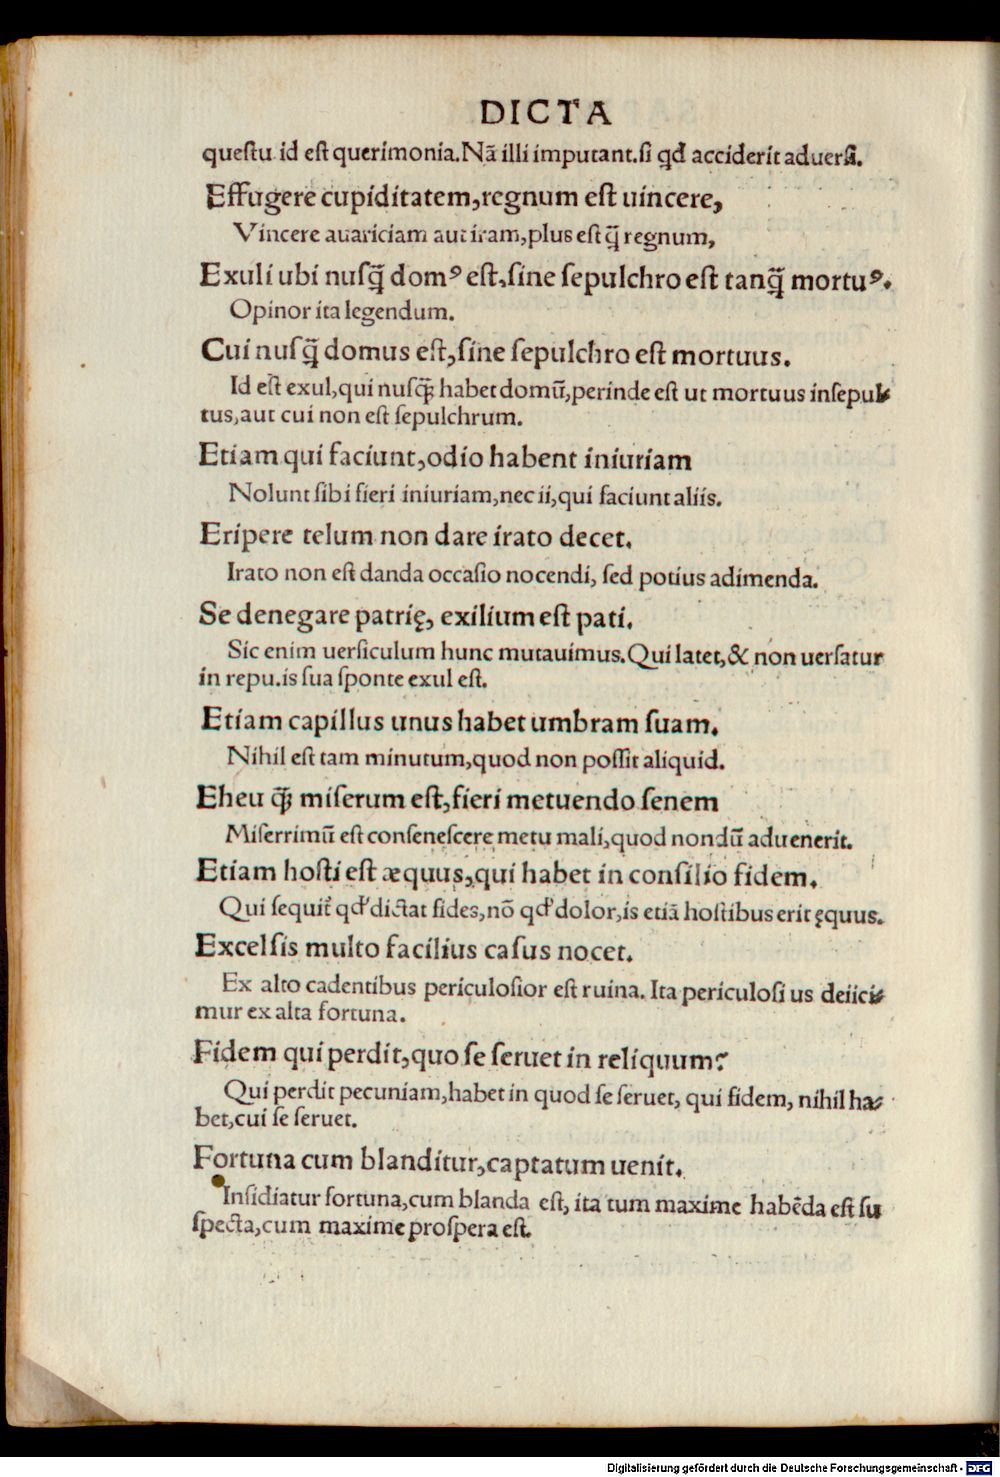 DICTA
queſtu id eſt querimonia.Nā illi imputant.ſi qđ acciderit aduerſi.
Effugere cupiditatem,regnum eſt uincere,
Vincere auariciam aut iram,plus eſt q̄ regnum,
Exuli ubi nuſq̄ domꝰ eſt,ſine ſepulchro eſt tanq̄ mortuꝰ.
Opinor ita legendum.
Cui nuſq̄ domus eſt,ſine ſepulchro eſt mortuus.
Id eſt exul,qui nuſq̄ habet domū,perinde eſt ut mortuus inſepul-
tus,aut cui non eſt ſepulchrum.
Etiam qui faciunt,odio habent iniuriam
Nolunt ſibi fieri iniuriam,nec ii,qui faciunt aliis.
Eripere telum non dare irato decet.
Irato non eſt danda occaſio nocendi, ſed potius adimenda.
Se denegare patrię, exilium eſt pati.
Sic enim uerſiculum hunc mutauimus.Qui latet,& non uerſatur
in repu.is ſua ſponte exul eſt.
Etiam capillus unus habet umbram ſuam.
Nihil eſt tam minutum,quod non poſſit aliquid.
Eheu q̄ miſerum eſt,fieri metuendo ſenem
Miſerrimū eſt conſeneſcere metu mali,quod nondū aduenerit.
Etiam hoſti eſt æquus,qui habet in conſilio fidem.
Qui ſequit̄ qđ dictat fides,nō qđ dolor,is etiā hoſtibus erit ęquus.
Excelſis multo facilius caſus nocet.
Ex alto cadentibus periculoſior eſt ruina. Ita periculoſi us deiici-
mur ex alta fortuna.
Fidem qui perdit,quo ſe ſeruet in reliquum?
Qui perdit pecuniam,habet in quod ſe ſeruet, qui fidem, nihil ha-
bet,cui ſe ſeruet.
Fortuna cum blanditur,captatum uenit.
Inſidiatur fortuna,cum blanda eſt, ita tum maxime habēda eſt ſu
ſpecta,cum maxime proſpera eſt.
Digitalisierung gefördert durch die Deutsche Forschungsgemeinschaft - DFG